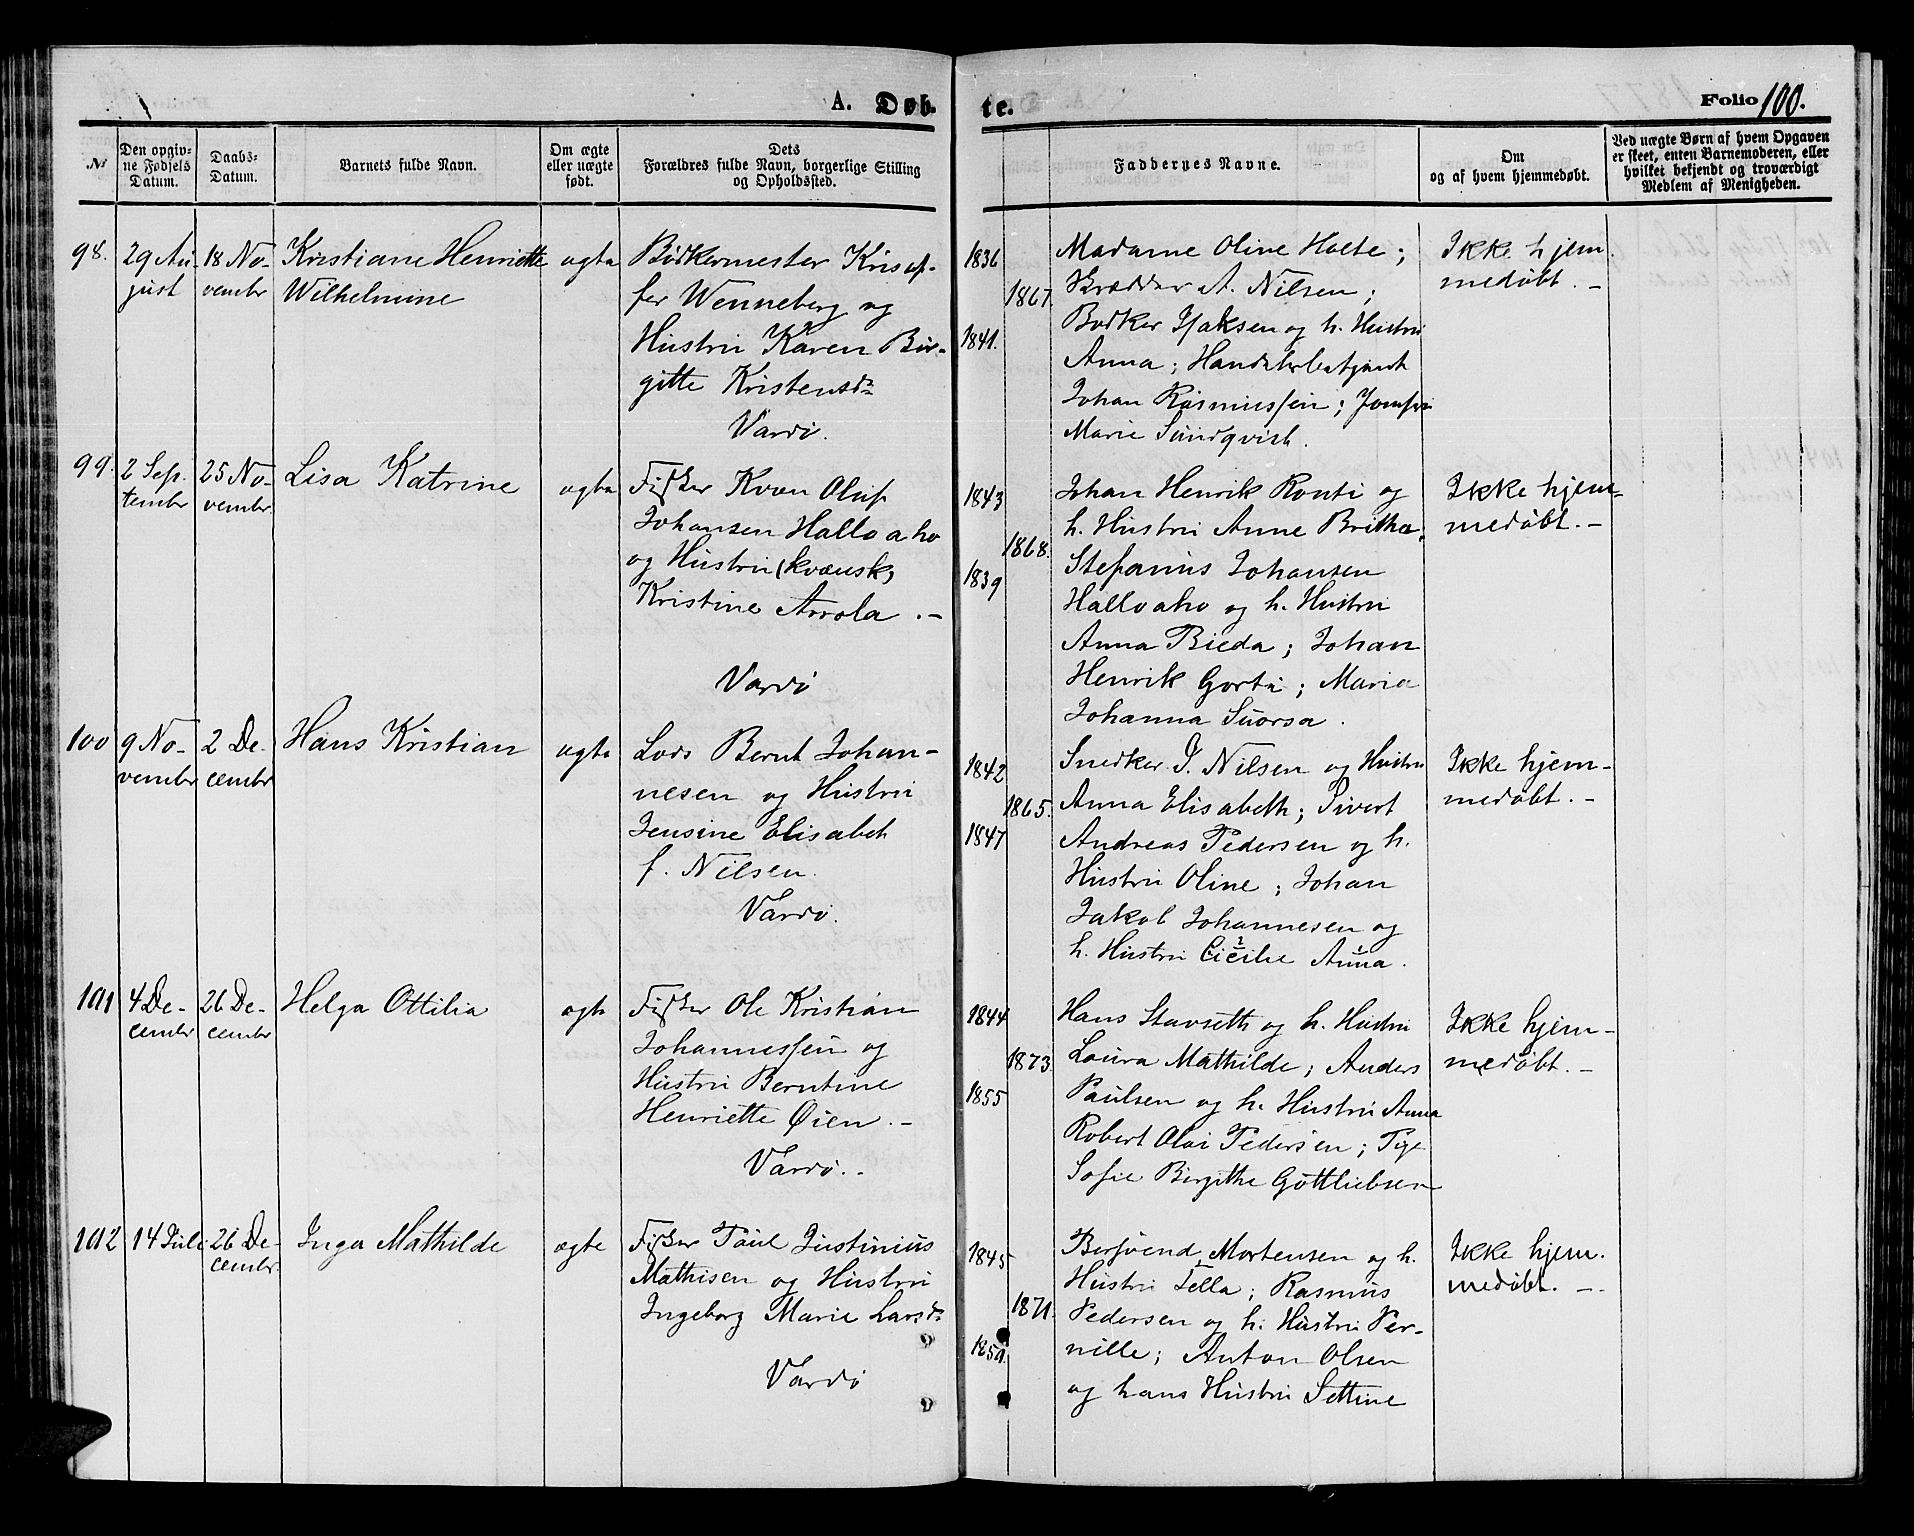 A. Døb-
te.
Folio 100.
№
Den opgiv-
ne Fødsels
Datum.
Daabs-
Datum.
Barnets fulde Navn.
Om ægte
eller uægte
født.
Dets
Forældres fulde Navn, borgerlige Stilling
og Opholdssted.
Faddernes Navne.
Om
og af hvem hjemmedøbt.
Ved uægte Børn af hvem Opgaven
er skeet, enten Barnemoderen, eller
hvilket bekjendt og troværdigt
Medlem af Menigheden.
98.
29 Au-
gust
18 No-
vembr
Kristiane Henriette
Wilhelmine
ægte
Bødkermester Kristof-
fer Wenneberg og
Hustru Karen Bir-
gitte Kristensdr
Vardø.
1836
1867.
1841.
Madame Oline Holte;
A. Nilsen;
Bødker Isaksen og h. Hustru
Anna; Handelsbetjent
Johan Rasmussen; Jomfru
Marie Sundqvist.
Ikke hjem-
medøbt. -
99.
2 Sep-
tembr
25 No-
vembr
Lisa Katrine
ægte
Fisker Kvæn Oluf
Johansen Halloaho
og Hustru (kvænsk)
Kristine Arrola. -
Vardø
1843
1868.
1839
Johan Henrik Ronti og
h. Hustru Anne Britha;
Stefanus Johansen
Halloaho og h. Hustru
Anna Bieda; Johan
Henrik Gorti; Maria
Johanna Suorsa.
Ikke hjem-
medøbt. -
100
9 No-
vembr
2 De-
cembr
Hans Kristian
ægte
Lods Bernt Johan-
nesen og Hustru
Jensine Elisabet
f. Nilsen.
Vardø.
1842
1865.
1847
Snedker J. Nilsen og Hustru
Anna Elisabeth; Sivert
Andreas Pedersen og h.
Hustru Oline; Johan
Jakob Johannesen og
h. Hustru Cicilie Anna.
Ikke hjem-
medøbt. -
101
4 De-
cembr
26 De-
cembr
Helga Ottilia
ægte
Fisker Ole Kristian
Johannessen og
Hustru Berntine
Henriette Øien. -
Vardø. -
1844
1873.
1855
Hans Stavseth og h. Hustru
Laura Mathilde; Anders
Paulsen og h. Hustru Anna
Robert Olai Pedersen; Pige
Sofie Birgithe Gottliebsen
Ikke hjem-
medøbt. -
102
14 Juli
26 De-
cembr.
Inga Mathilde
ægte
Fisker Paul Justinius
Mathisen og Hustru
Ingeborg Marie Larsdr
Vardø
1845
1871.
1850.
Bersvend Mortensen og h.
Hustru Tella; Rasmus
Pedersen og h. Hustru Per-
nille; Anton Olsen
og hans Hustru Settine
Ikke hjem-
medøbt. -